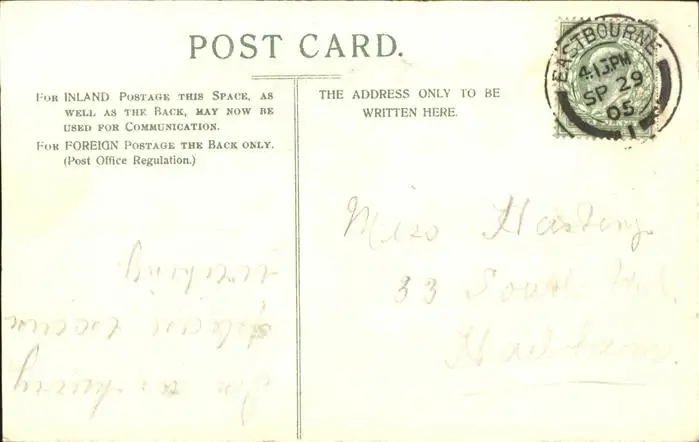 POST CARD.
FOR INLAND POSTAGE THIS SPACE, AS
WELL AS THE BACK, MAY NOW BE
USED FOR COMMUNICATION.
FOR FOREIGN POSTAGE THE BACK ONLY.
(Post Office Regulation.)
THE ADDRESS ONLY TO BE
WRITTEN HERE.
EASTBOURNE
4.15PM
SP 29
05
Miss Hastings
33 South Rd.
Hailsham.
In a hurry
please excuse
writing